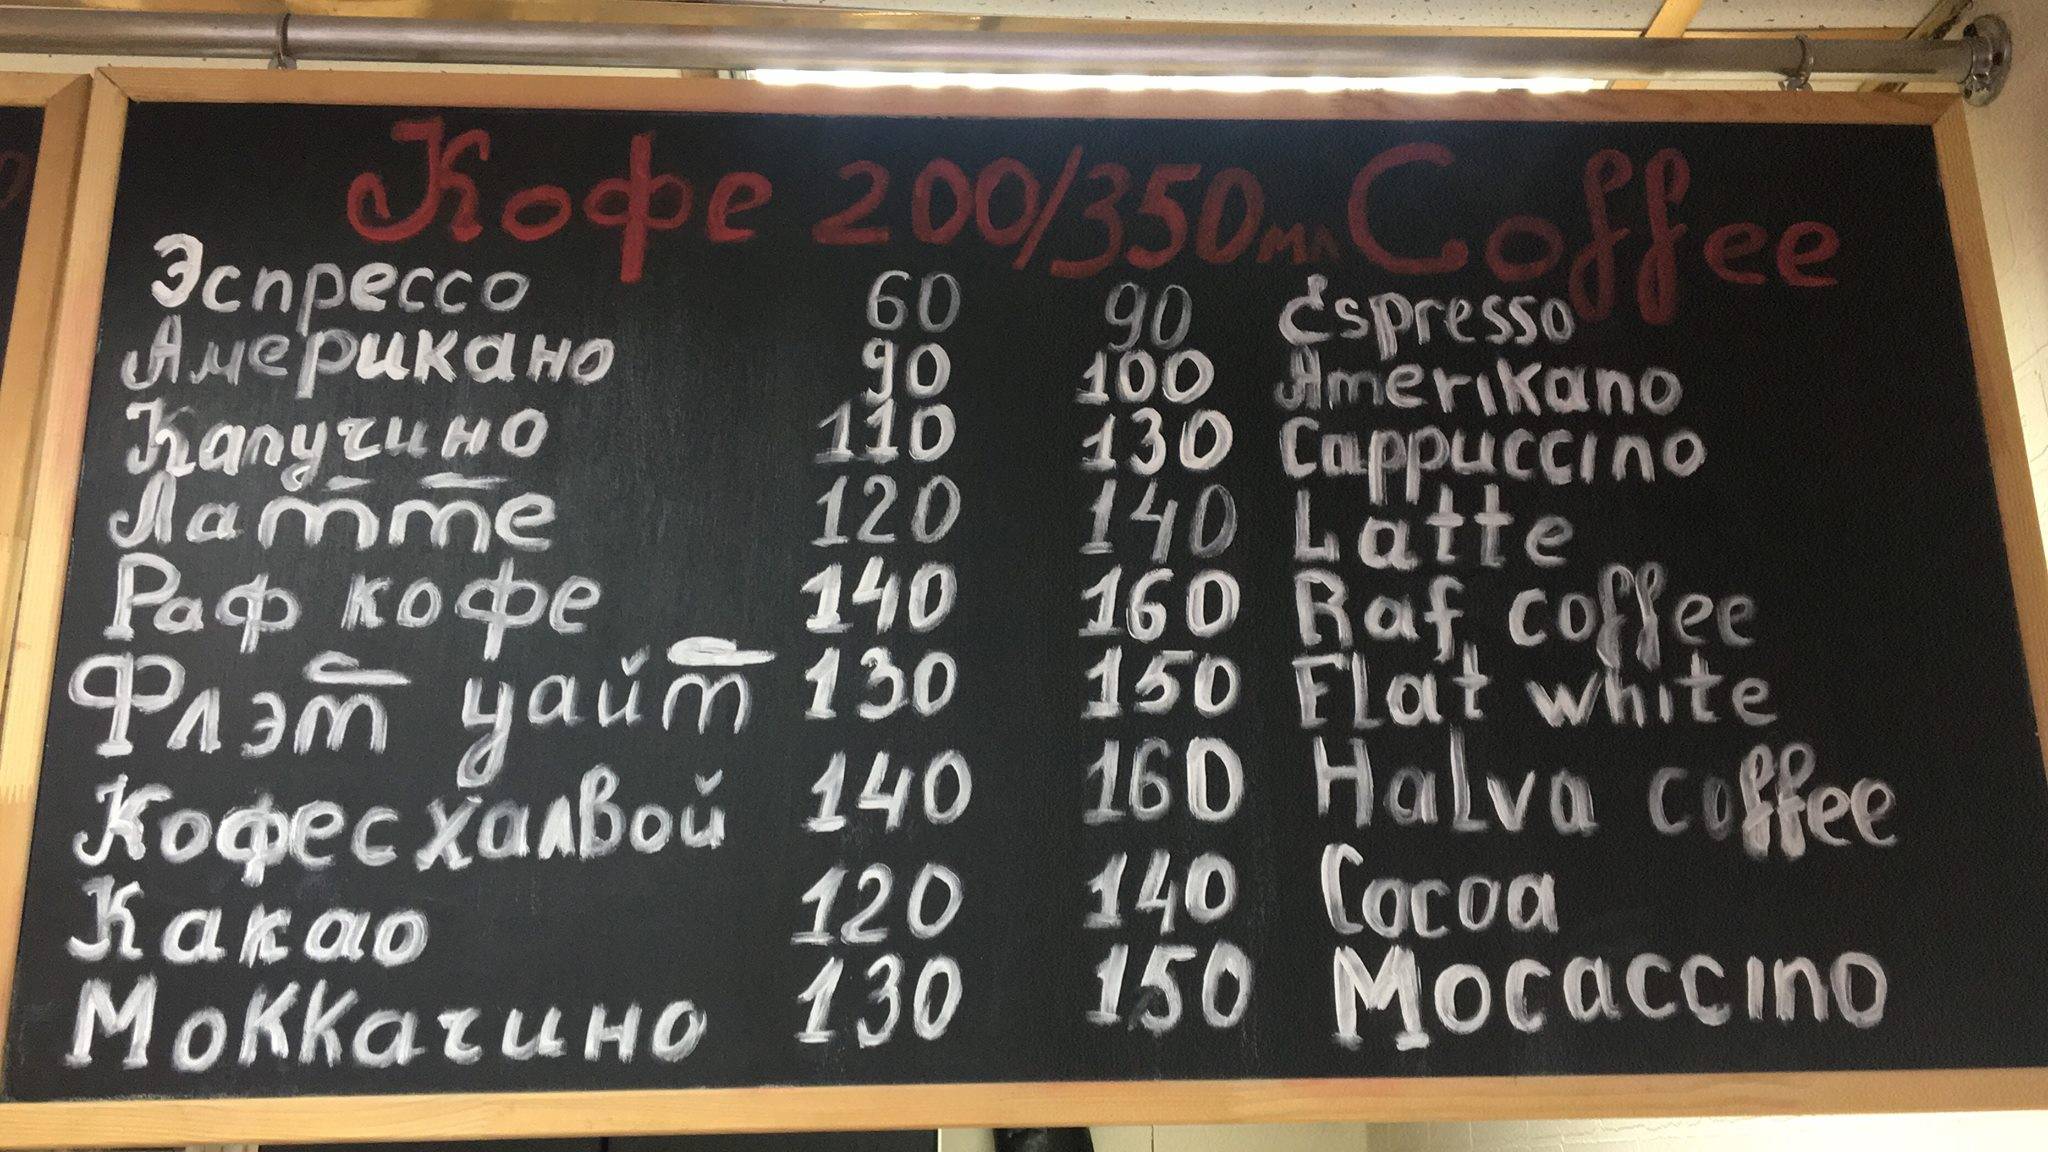 Кофе 200/350мл Coffee
Эспрессо 60 90 Espresso
Американо 90 100 Amerikano
Капучино 110 130 Cappuccino
Латте 120 140 Latte
Раф кофе 140 160 Raf coffee
Флэт уайт 130 150 Flat white
Кофе с халвой 140 160 Halva coffee
Какао 120 140 Cocoa
Моккачино 130 150 Mocaccino